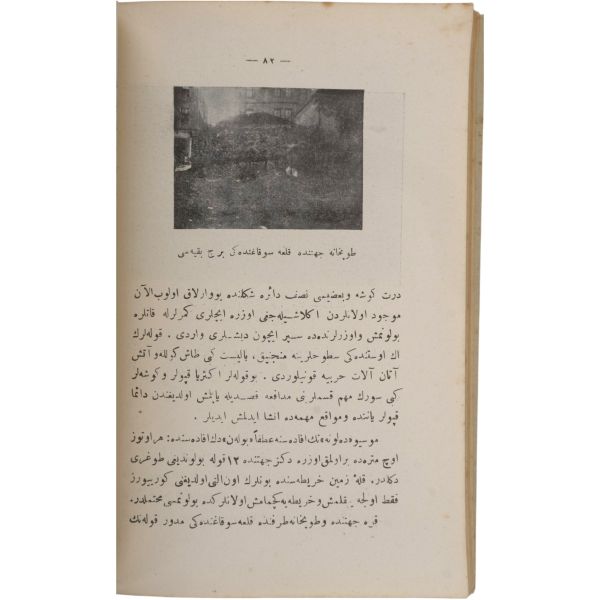 — ٨٢ —
طوپخانه جهتنده قلعه سوقاغنده‌کی برج بقیه‌سی
درت کوشه وبعضیسی نصف دائره شکلنده بووارلاق اولوب الآن
موجود اولانلردن اکلاشیله‌جغی اوزره ایچلری کمرلرله قاتلره
بولونمش واوزرلرنده‌ده سپر ایچون دیشلری واردی . قوله‌لرك
اك اوستنده‌کی سطوحلرینه منجنیق، بالیست کبی طاش کولله وآتش
آتان آلات حربیه قونیلوردی . بوقوله‌لر اکثریا قپولر وکوشه‌لر
کبی سورك مهم قسملرنی مدافعه قصدیله یاپلمش اولدیغندن دائما
قپولر یاننده ومواقع مهمه‌ده انشا ایدلمش ایدیلر .
موسیو ده‌لونه‌نك افاده‌سنه عطفاً بوله‌ن‌ده‌ك افاده‌سنده : هر اوتوز
اوچ متره‌ده بر اولمق اوزره دکز جهتنده ١٢ قوله بولوندیغی طوغری
دکلدر. قله زمین خریطه‌سنده بونلرك اون التی اولدیغنی کوریيورز
فقط اولجه ییقلمش وخریطه‌یه کچمامش اولانلرك‌ده بولونمسی محتملدر.
قره جهتنده وطوپخانه طرفنده قلعه سوقاغنده‌کی مدور قوله‌نك